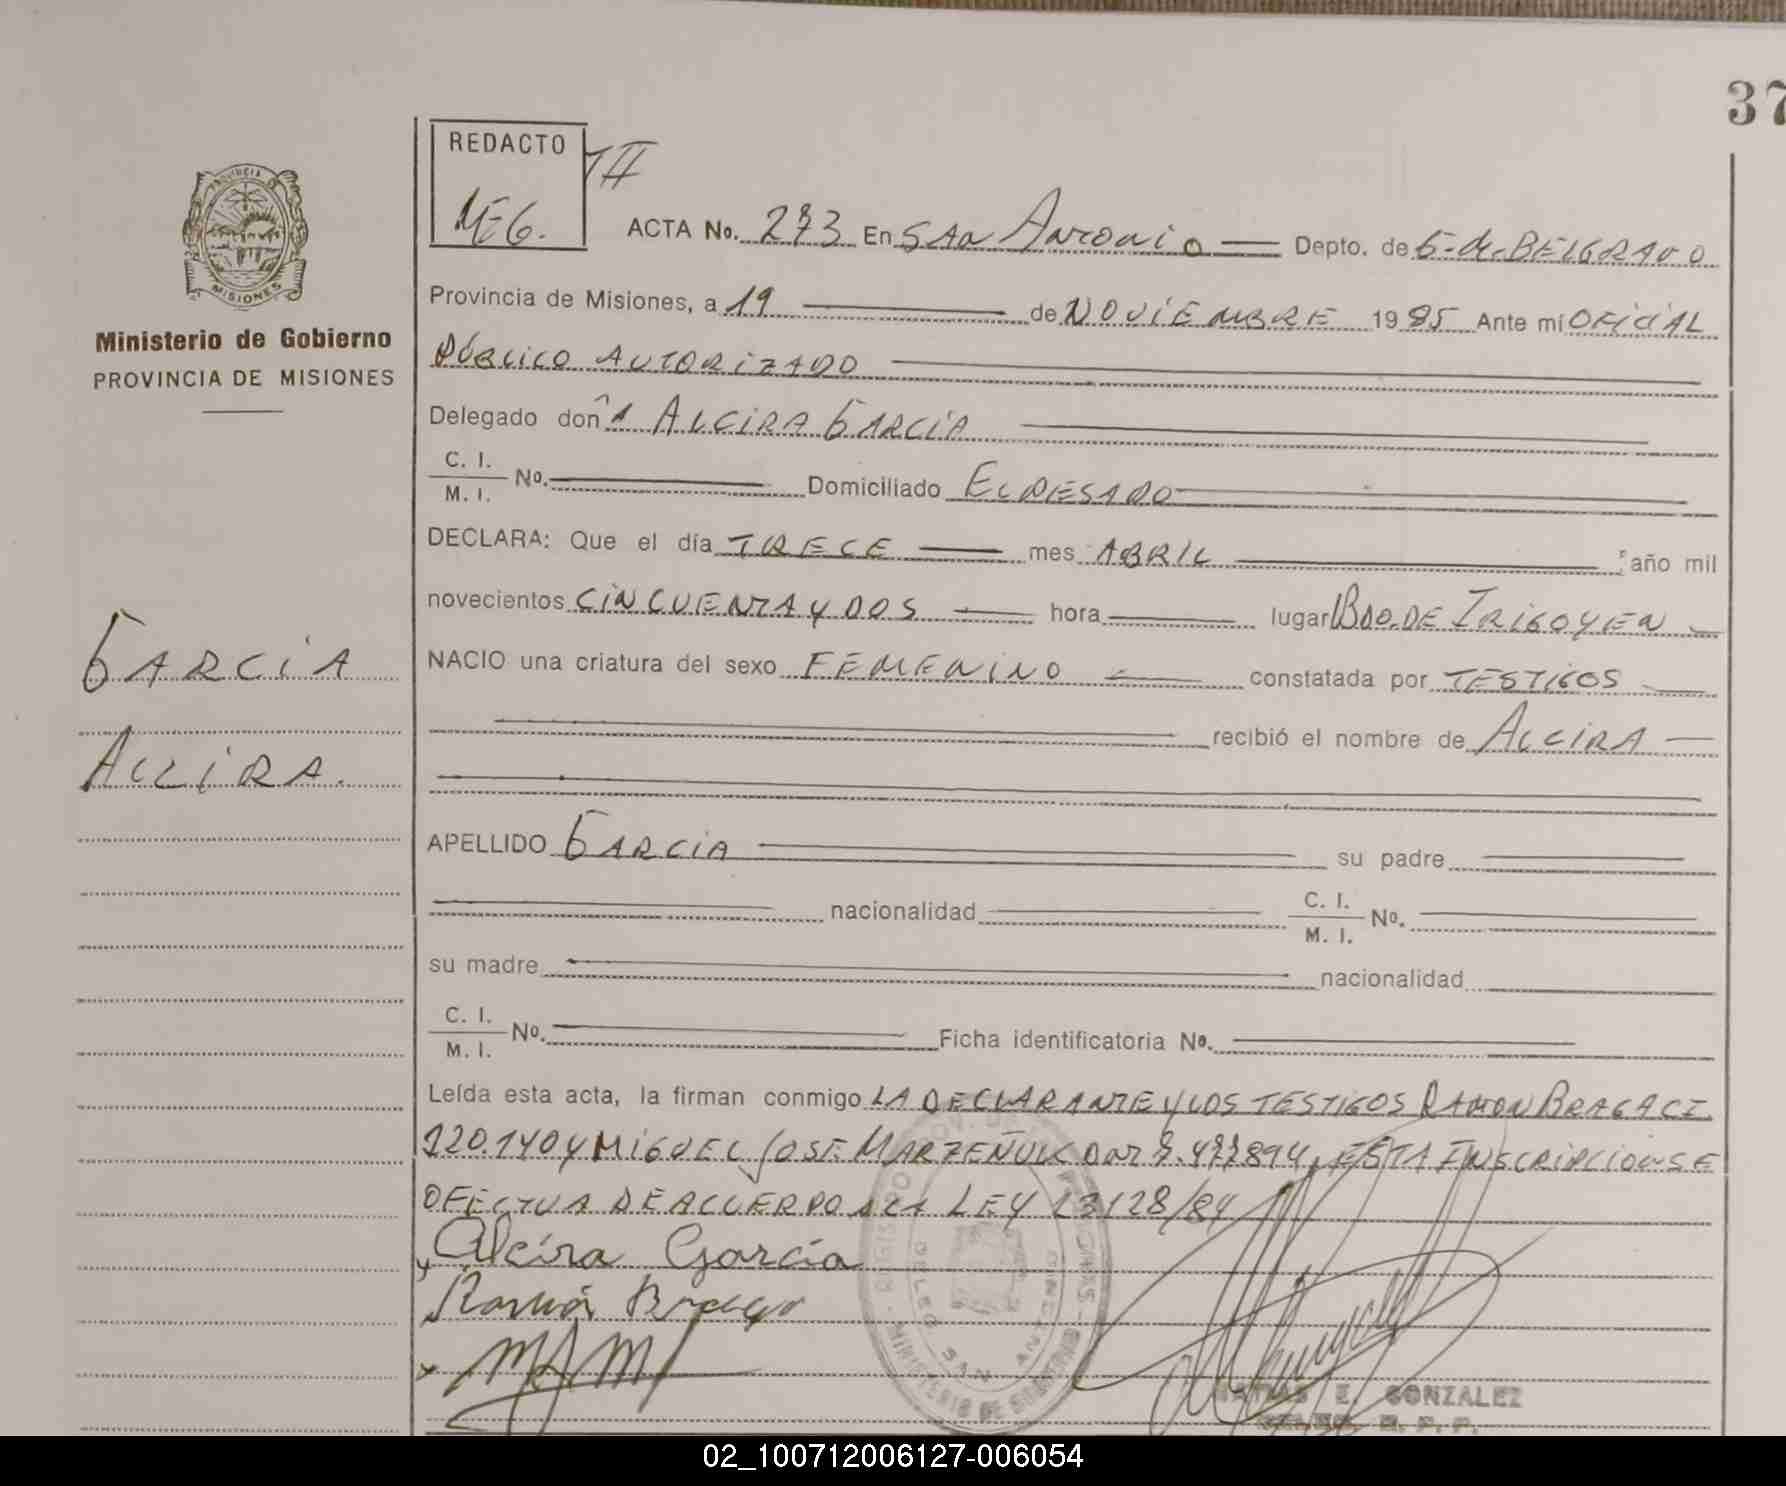 37
REDACTO
MEG.
PROVINCIA
MISIONES
Ministerio de Gobierno
PROVINCIA DE MISIONES
ACTA No. 273 En SAn AnTOniO Depto. de G-de-BELGRANO
Provincia de Misiones, a 19 de NOViEMBRE 1985 Ante mi OFiCiAL
PÚBLiCO AUTORiZADO
Delegado doñA ALCiRA GARCíA
C. I.
M. I. No. Domiciliado ELDESADO
DECLARA: Que el día TRECE mes ABRIL año mil
novecientos CiNCUENTA y DOS hora lugar BDO. DE IRiGOYEN
NACIO una criatura del sexo FEMENiNO constatada por TESTiGOS
recibió el nombre de ALCiRA
GARCiA
ALCiRA.
APELLIDO GARCiA su padre
nacionalidad C. I.
M. I. No.
su madre nacionalidad
C. I.
M. I. No. Ficha identificatoria No.
Leída esta acta, la firman conmigo LA DECLARANTE y LOS TESTiGOS RAMON BRAGA CI.
120.140 y MiGUEL JOSE MARZEÑUK DNI 7.477894, ESTA INSCRiPCiON SE
OFECTUA DE ACUERDO A LA LEY 23128/84
Alcira Garcia
Ramón Braga
MINISTERIO DE GOBIERNO
DELEG. SAN ANT
MATIAS E. GONZALEZ
02_100712006127-006054